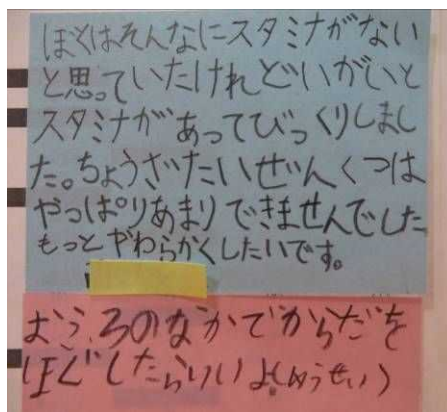 ぼくはそんなにスタミナがない
と思っていたけれどいがいと
スタミナがあってびっくりしまし
た。ちょうざたいぜんくつは
やっぱりあまりできませんでした
もっとやわらかくしたいです。
おふろのなかでからだを
ほぐしたらいいよ!(めうせい)